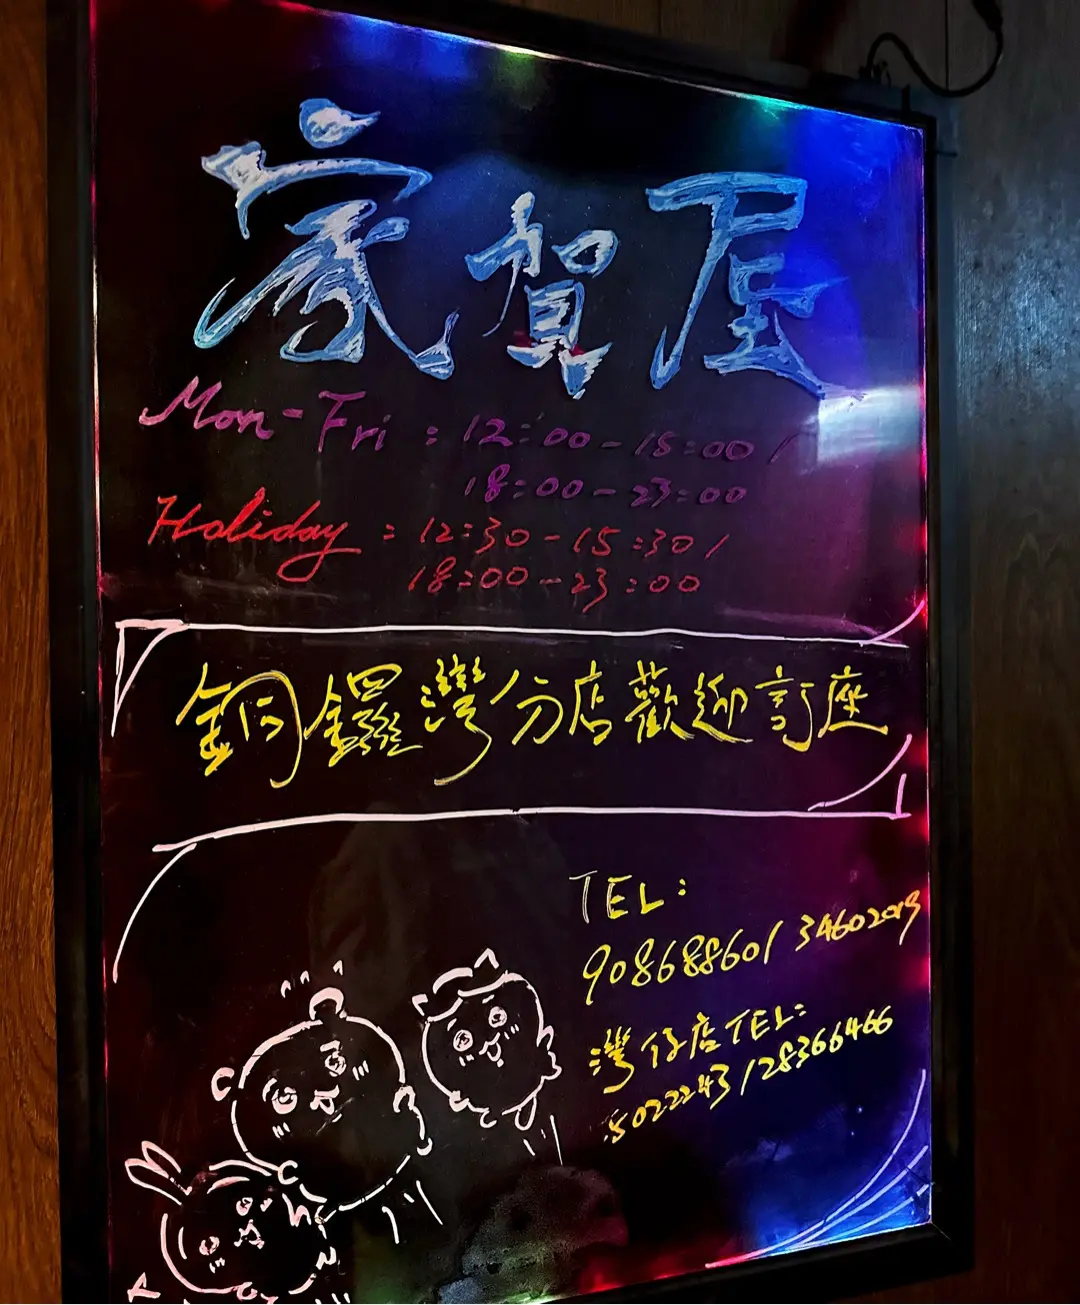 家賀屋
Mon-Fri : 12:00-15:00/
18:00-23:00
Holiday : 12:30-15:30/
18:00-23:00
銅鑼灣分店歡迎訂座
TEL:
90868860/34602019
灣仔店TEL:
/28366466